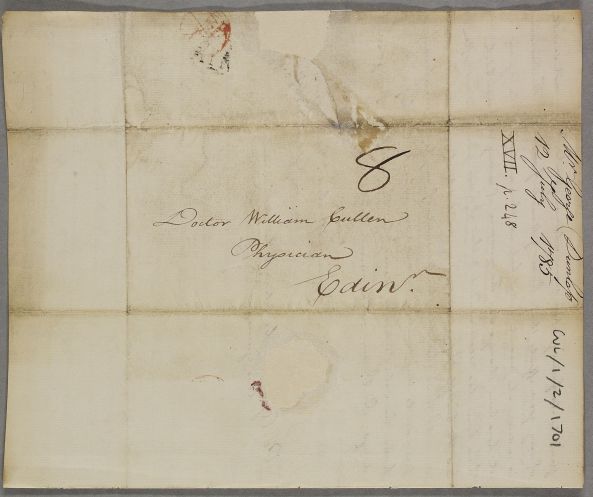 8
Doctor William Cullen
Physician
Edinr.
Mr George
12 July 1785
XVII. p. 248
CUL/1/2/1701